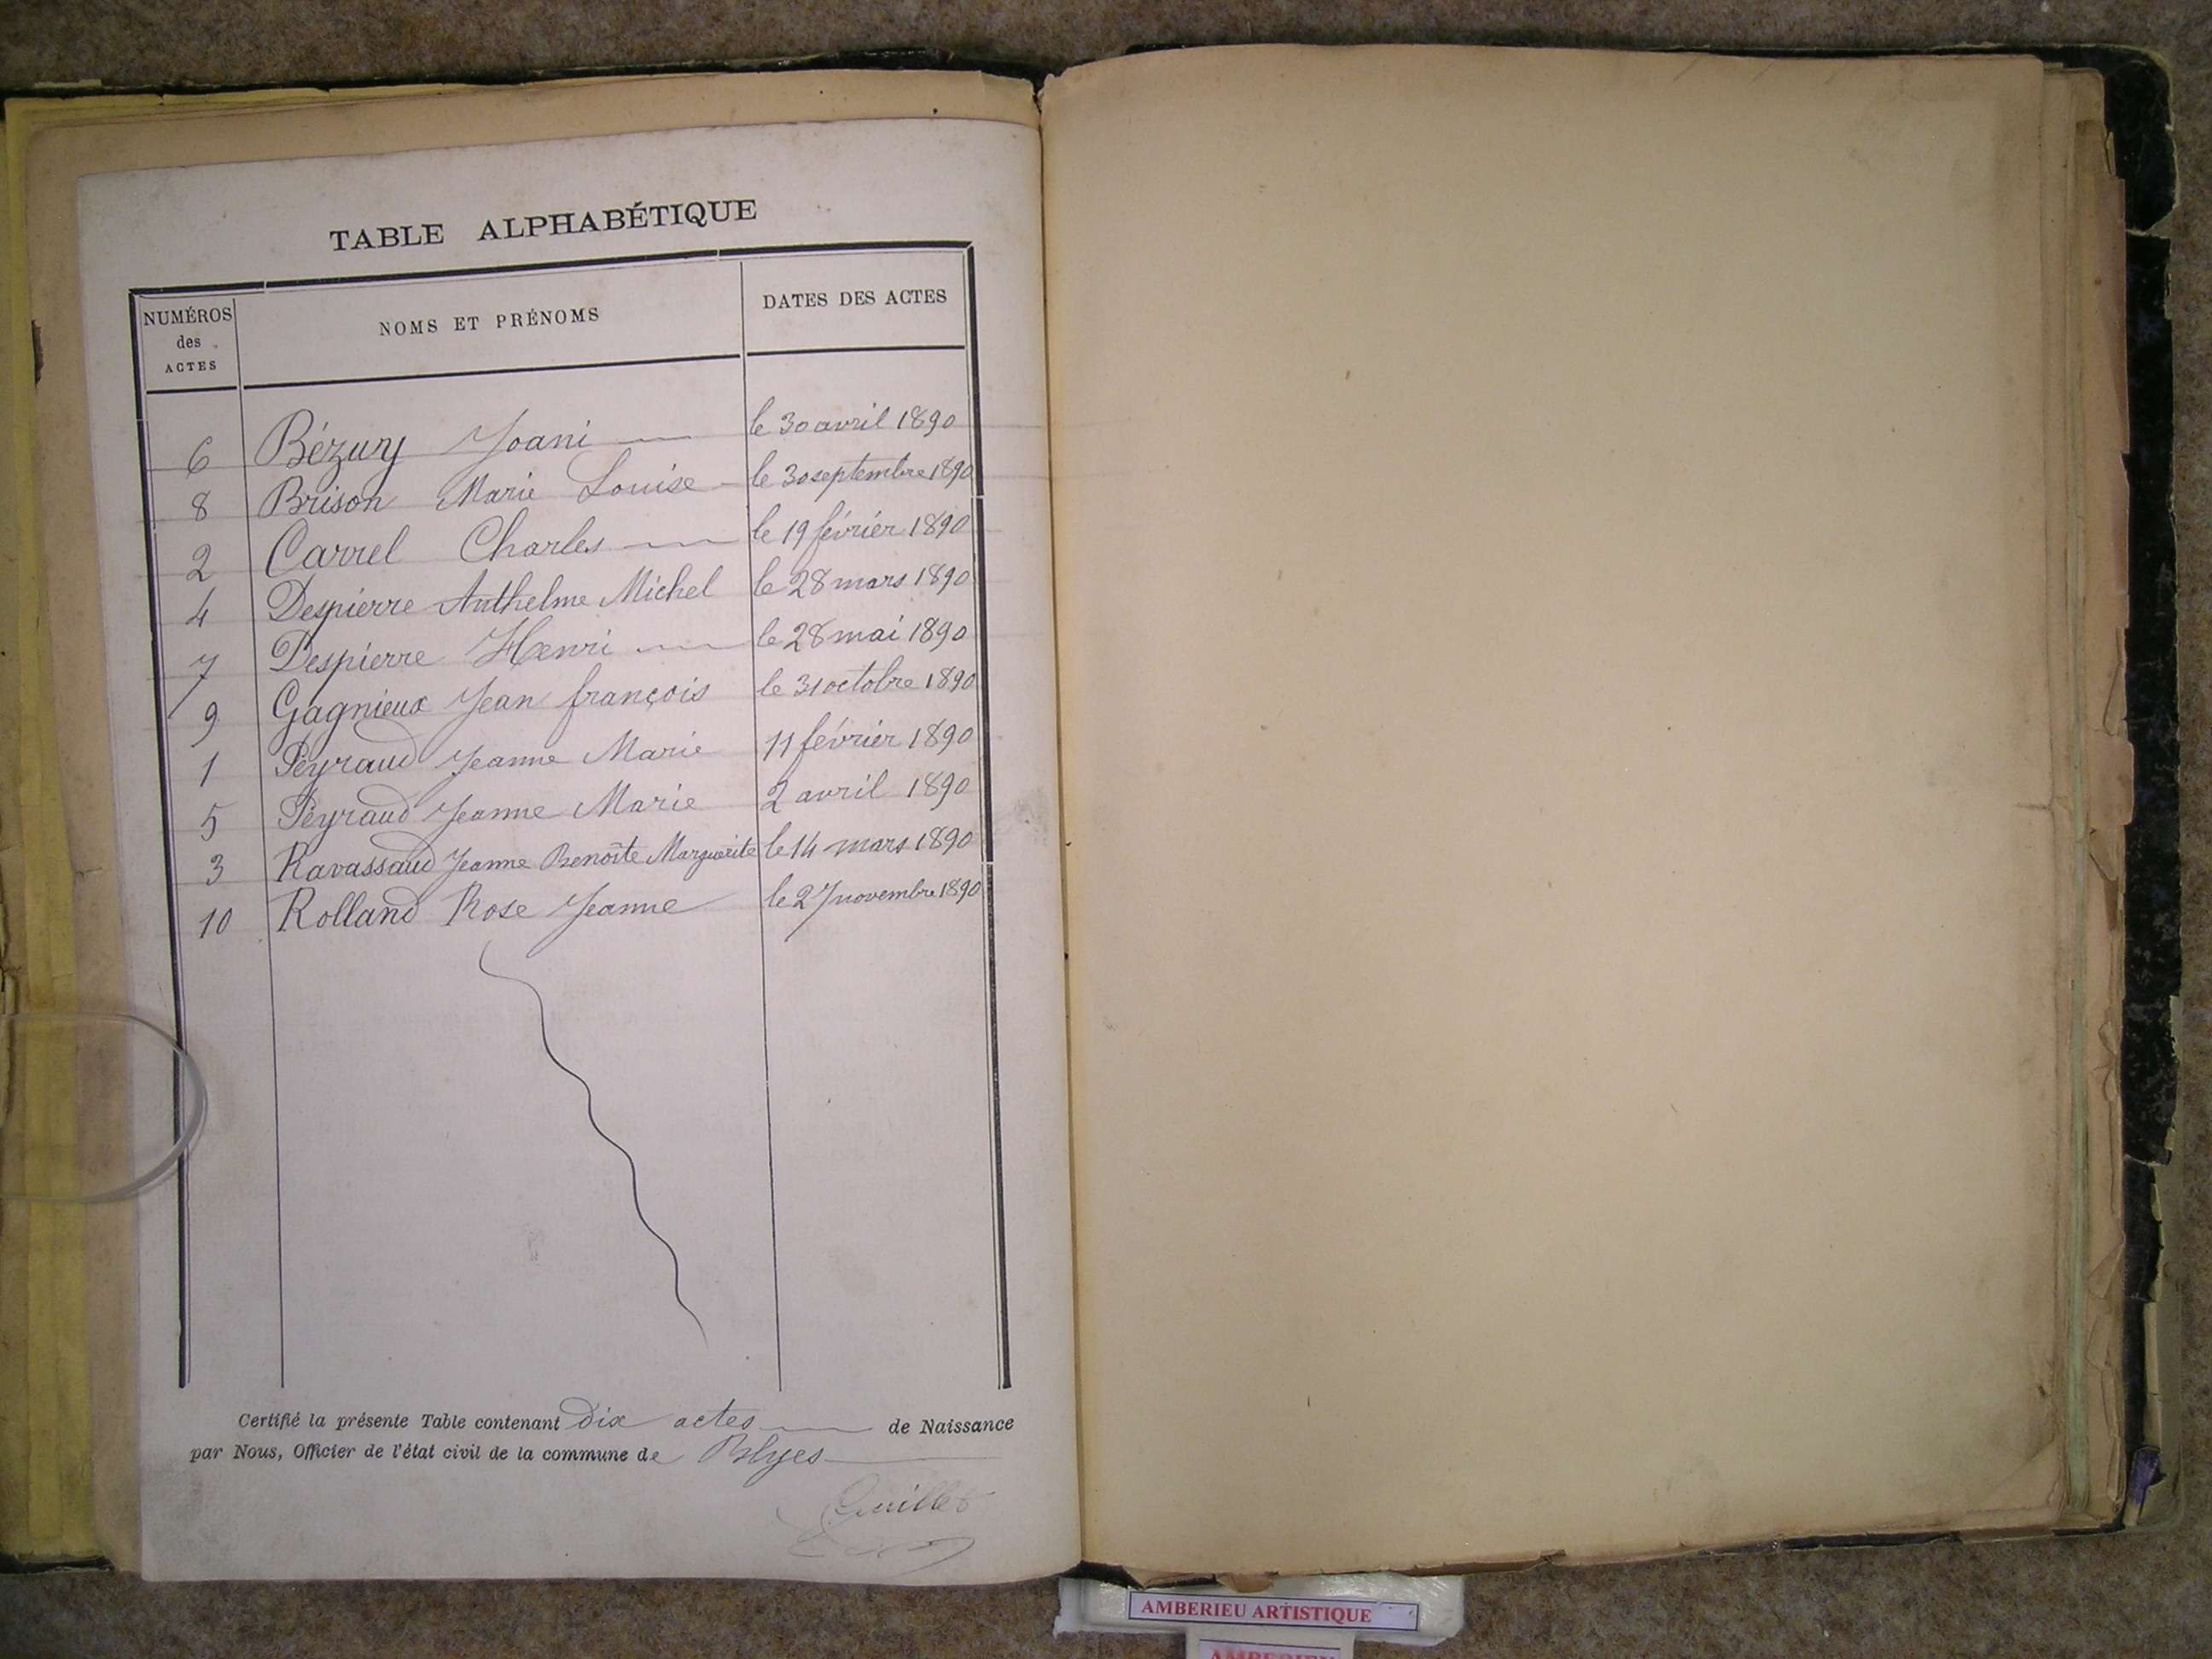 TABLE ALPHABÉTIQUE
NUMÉROS des ACTES NOMS ET PRÉNOMS DATES DES ACTES
6 Bézuy Joani le 30 avril 1890
8 Brison Marie Louise le 30 septembre 1890
2 Carrel Charles le 19 février 1890
4 Despierre Anthelme Michel le 28 mars 1890
7 Despierre Henri le 28 mai 1890
9 Gagnieux Jean françois le 31 octobre 1890
1 Peyraud Jeanne Marie 11 février 1890
5 Peyraud Jeanne Marie 2 avril 1890
3 Ravassaud Jeanne Benoîte Marguerite le 14 mars 1890
10 Rolland Rose Jeanne le 27 novembre 1890
Certifié la présente Table contenant Dix actes de Naissance
par Nous, Officier de l'état civil de la commune de Blyes
AMBERIEU ARTISTIQUE
AMBERIEU